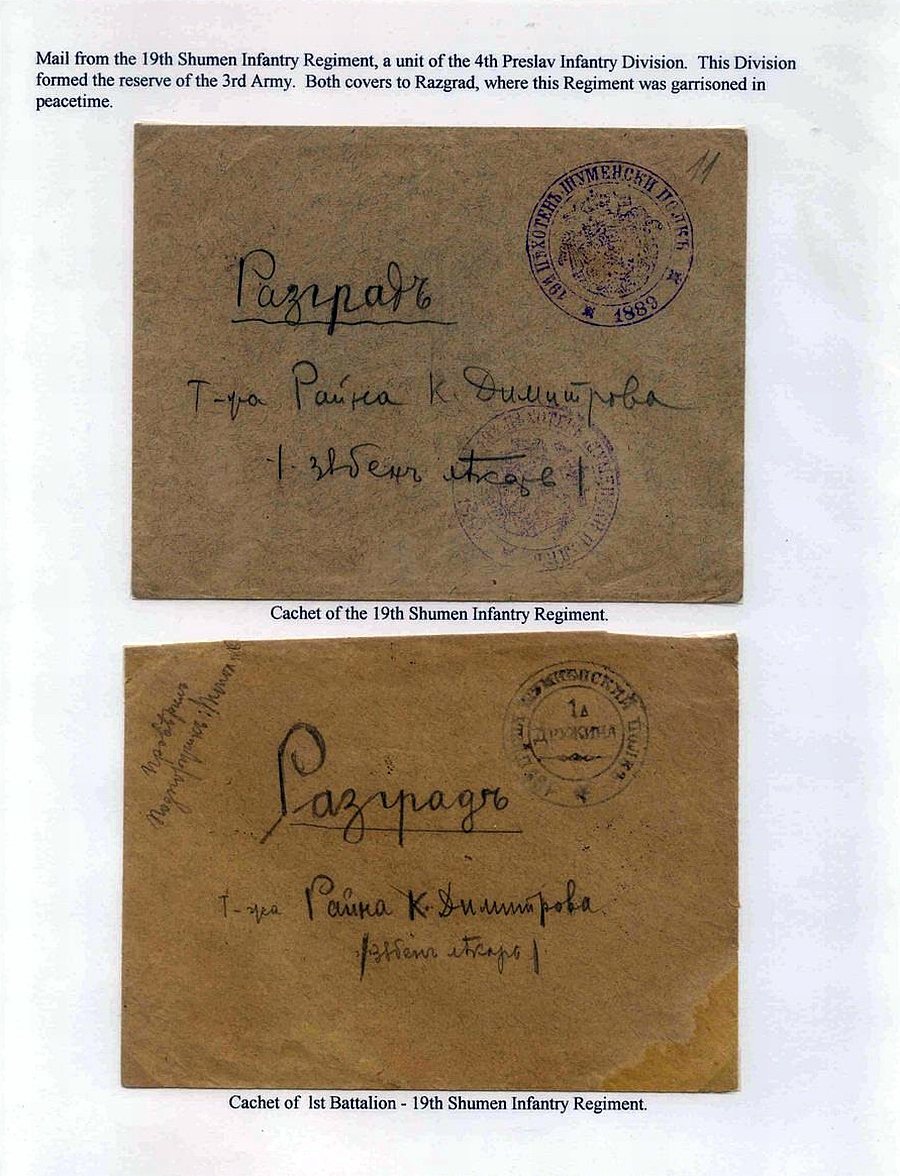 Mail from the 19th Shumen Infantry Regiment, a unit of the 4th Preslav Infantry Division. This Division
formed the reserve of the 3rd Army. Both covers to Razgrad, where this Regiment was garrisoned in
peacetime.
11
19й ПѢХОТЕНЪ ШУМЕНСКИ ПОЛКЪ
1889
Разградъ
Т-жа Райна К. Димитрова
/ зѫбенъ лѣкарь /
Cachet of the 19th Shumen Infantry Regiment.
1а
ДРУЖИНА
Разградъ
Т-жа Райна К. Димитрова
/зѫбенъ лѣкарь/
Cachet of 1st Battalion - 19th Shumen Infantry Regiment.